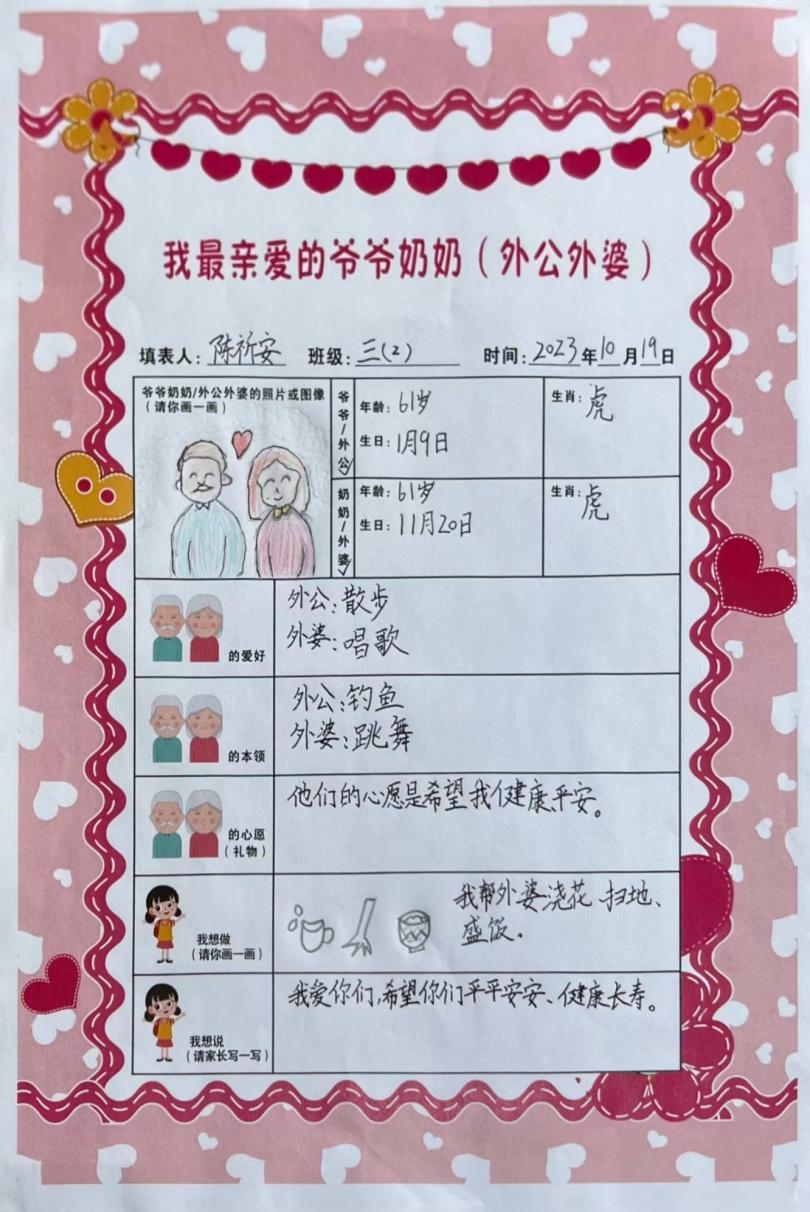 我最亲爱的爷爷奶奶（外公外婆）
填表人：陈祈安 班级：三(2) 时间：2023年10月19日
爷爷奶奶/外公外婆的照片或图像
（请你画一画）
爷爷/外公✓
年龄：61岁
生日：1月9日
生肖：虎
奶奶/外婆✓
年龄：61岁
生日：11月20日
生肖：虎
的爱好
外公：散步
外婆：唱歌
的本领
外公：钓鱼
外婆：跳舞
的心愿
（礼物）
他们的心愿是希望我健康、平安。
我想做
（请你画一画）
我帮外婆浇花、扫地、
盛饭。
我想说
（请家长写一写）
我爱你们,希望你们平平安安、健康长寿。